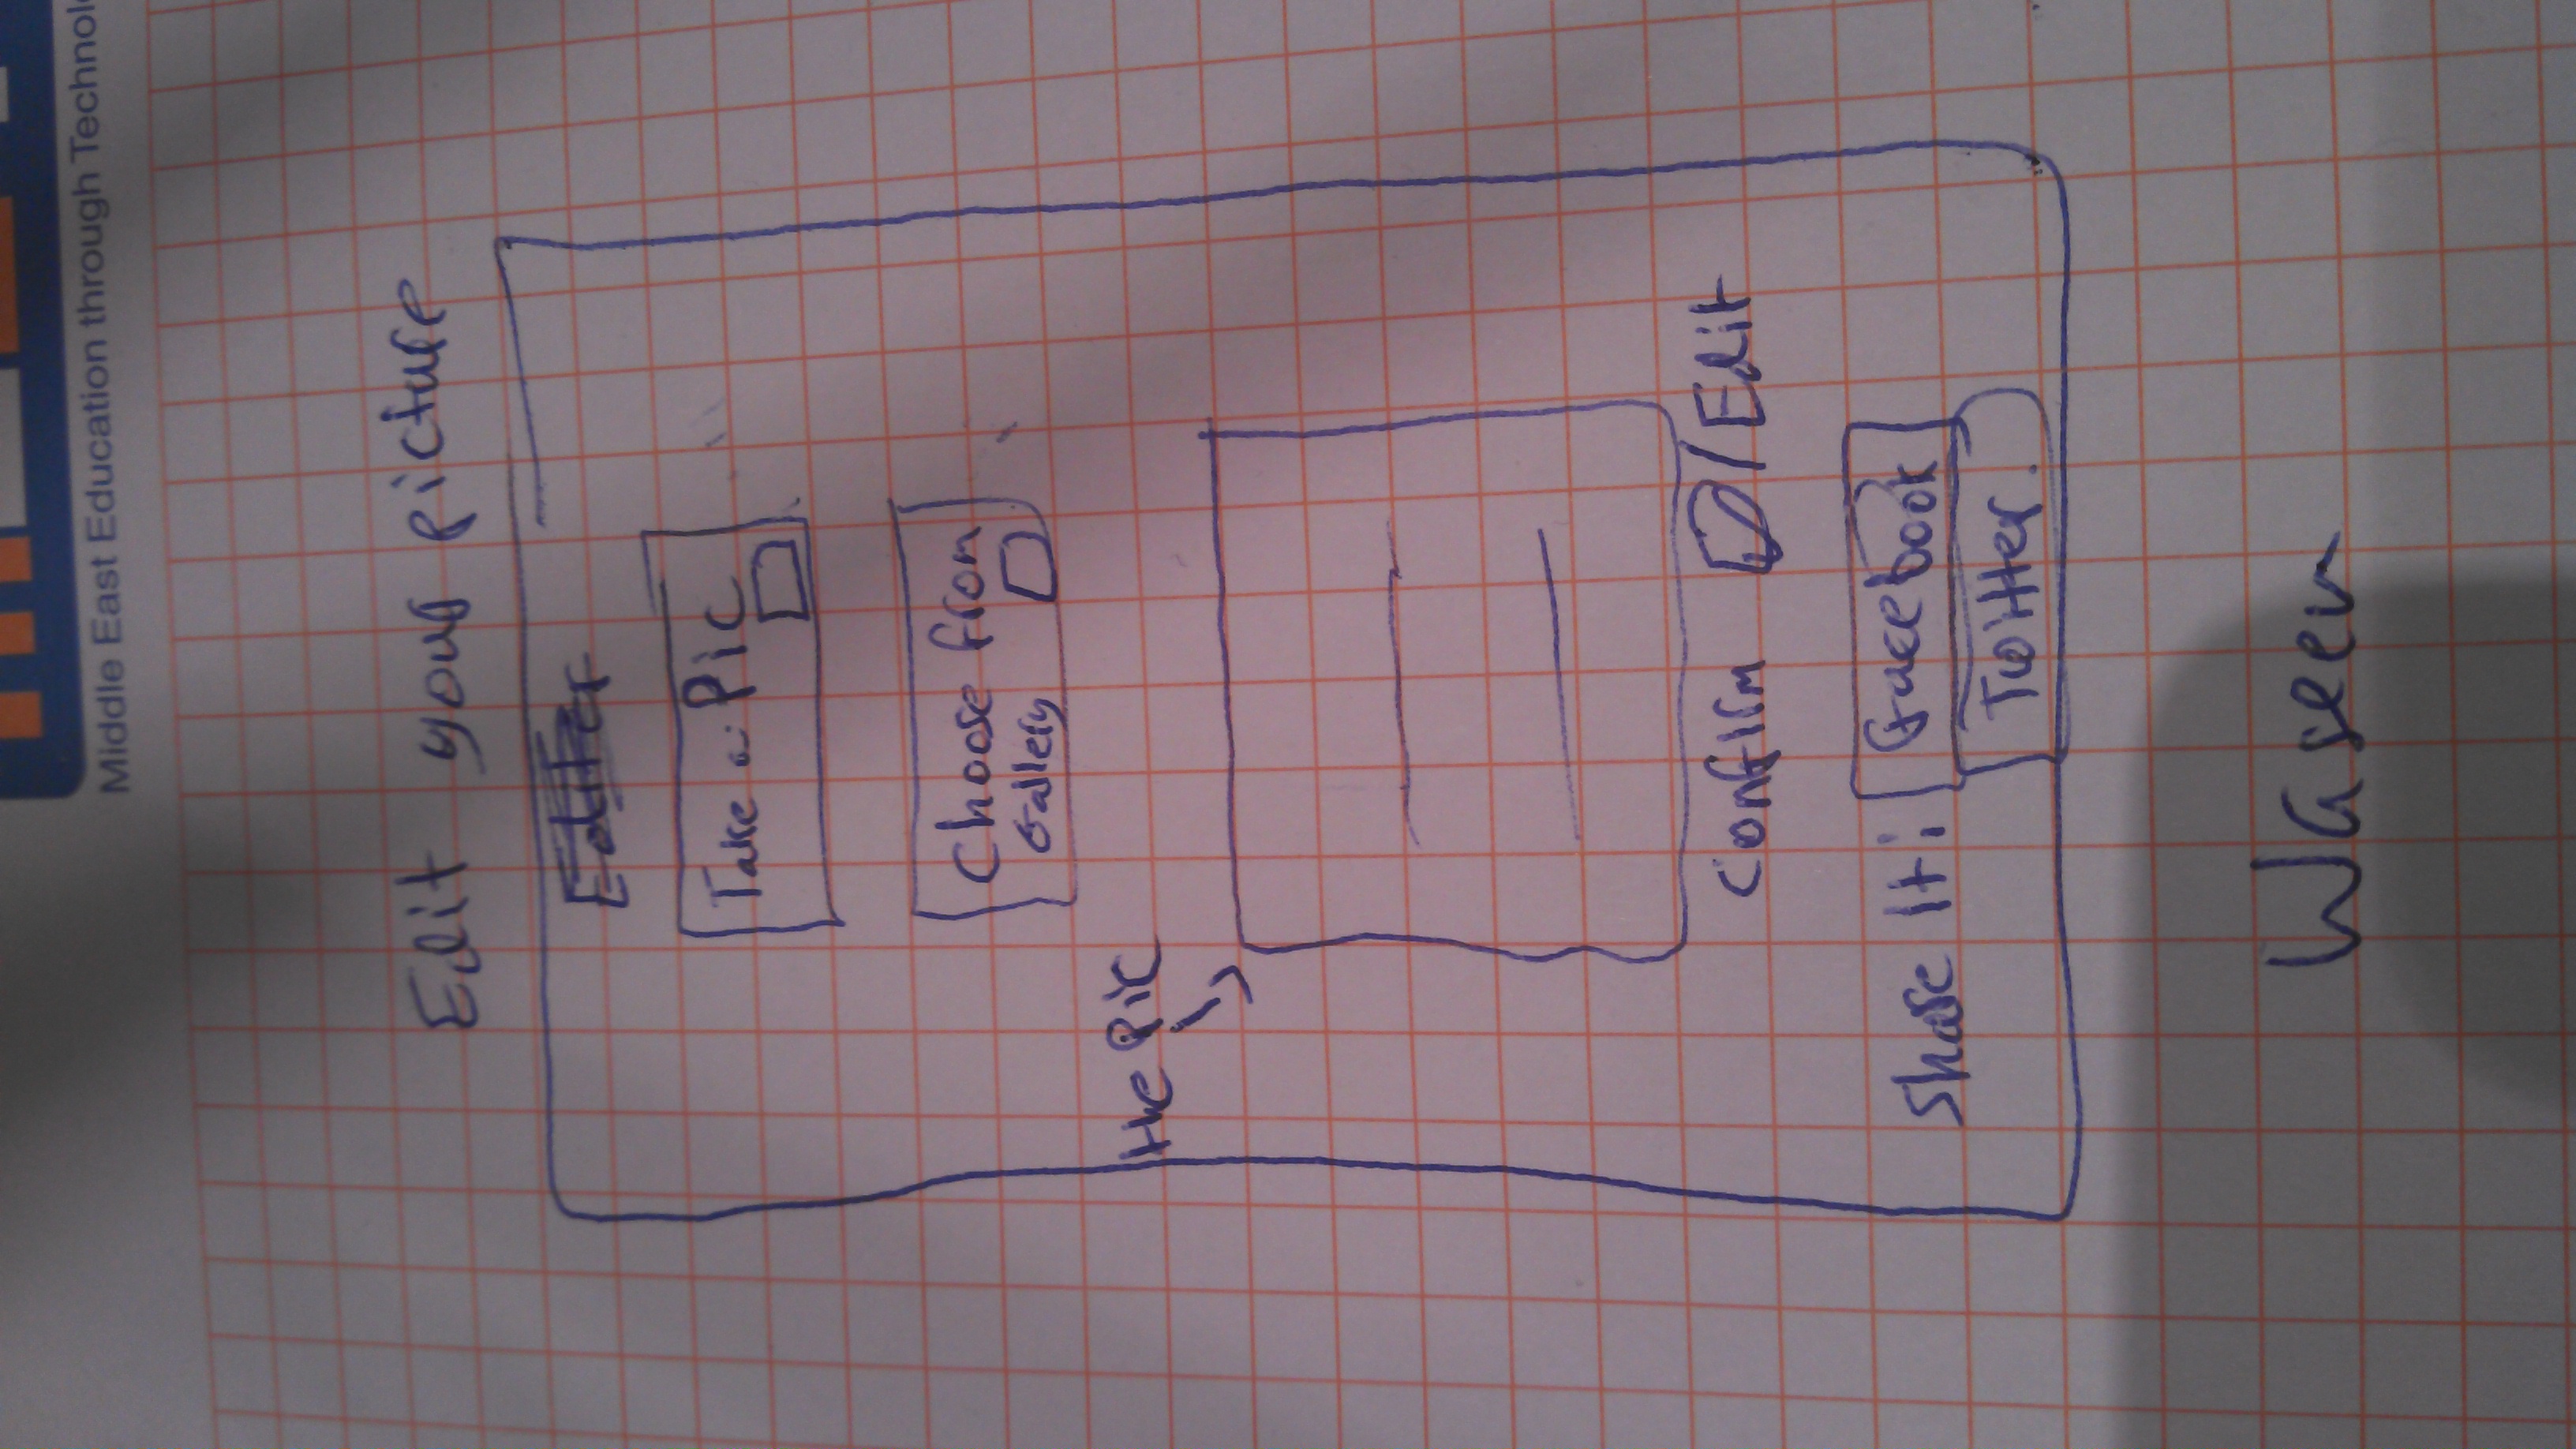 Middle East Education through Technol
Edit your picture
Take a PiC
Choose from
Gallery
the Pic
Confirm / Edit
Share It:
facebook
Twitter.
Waseem